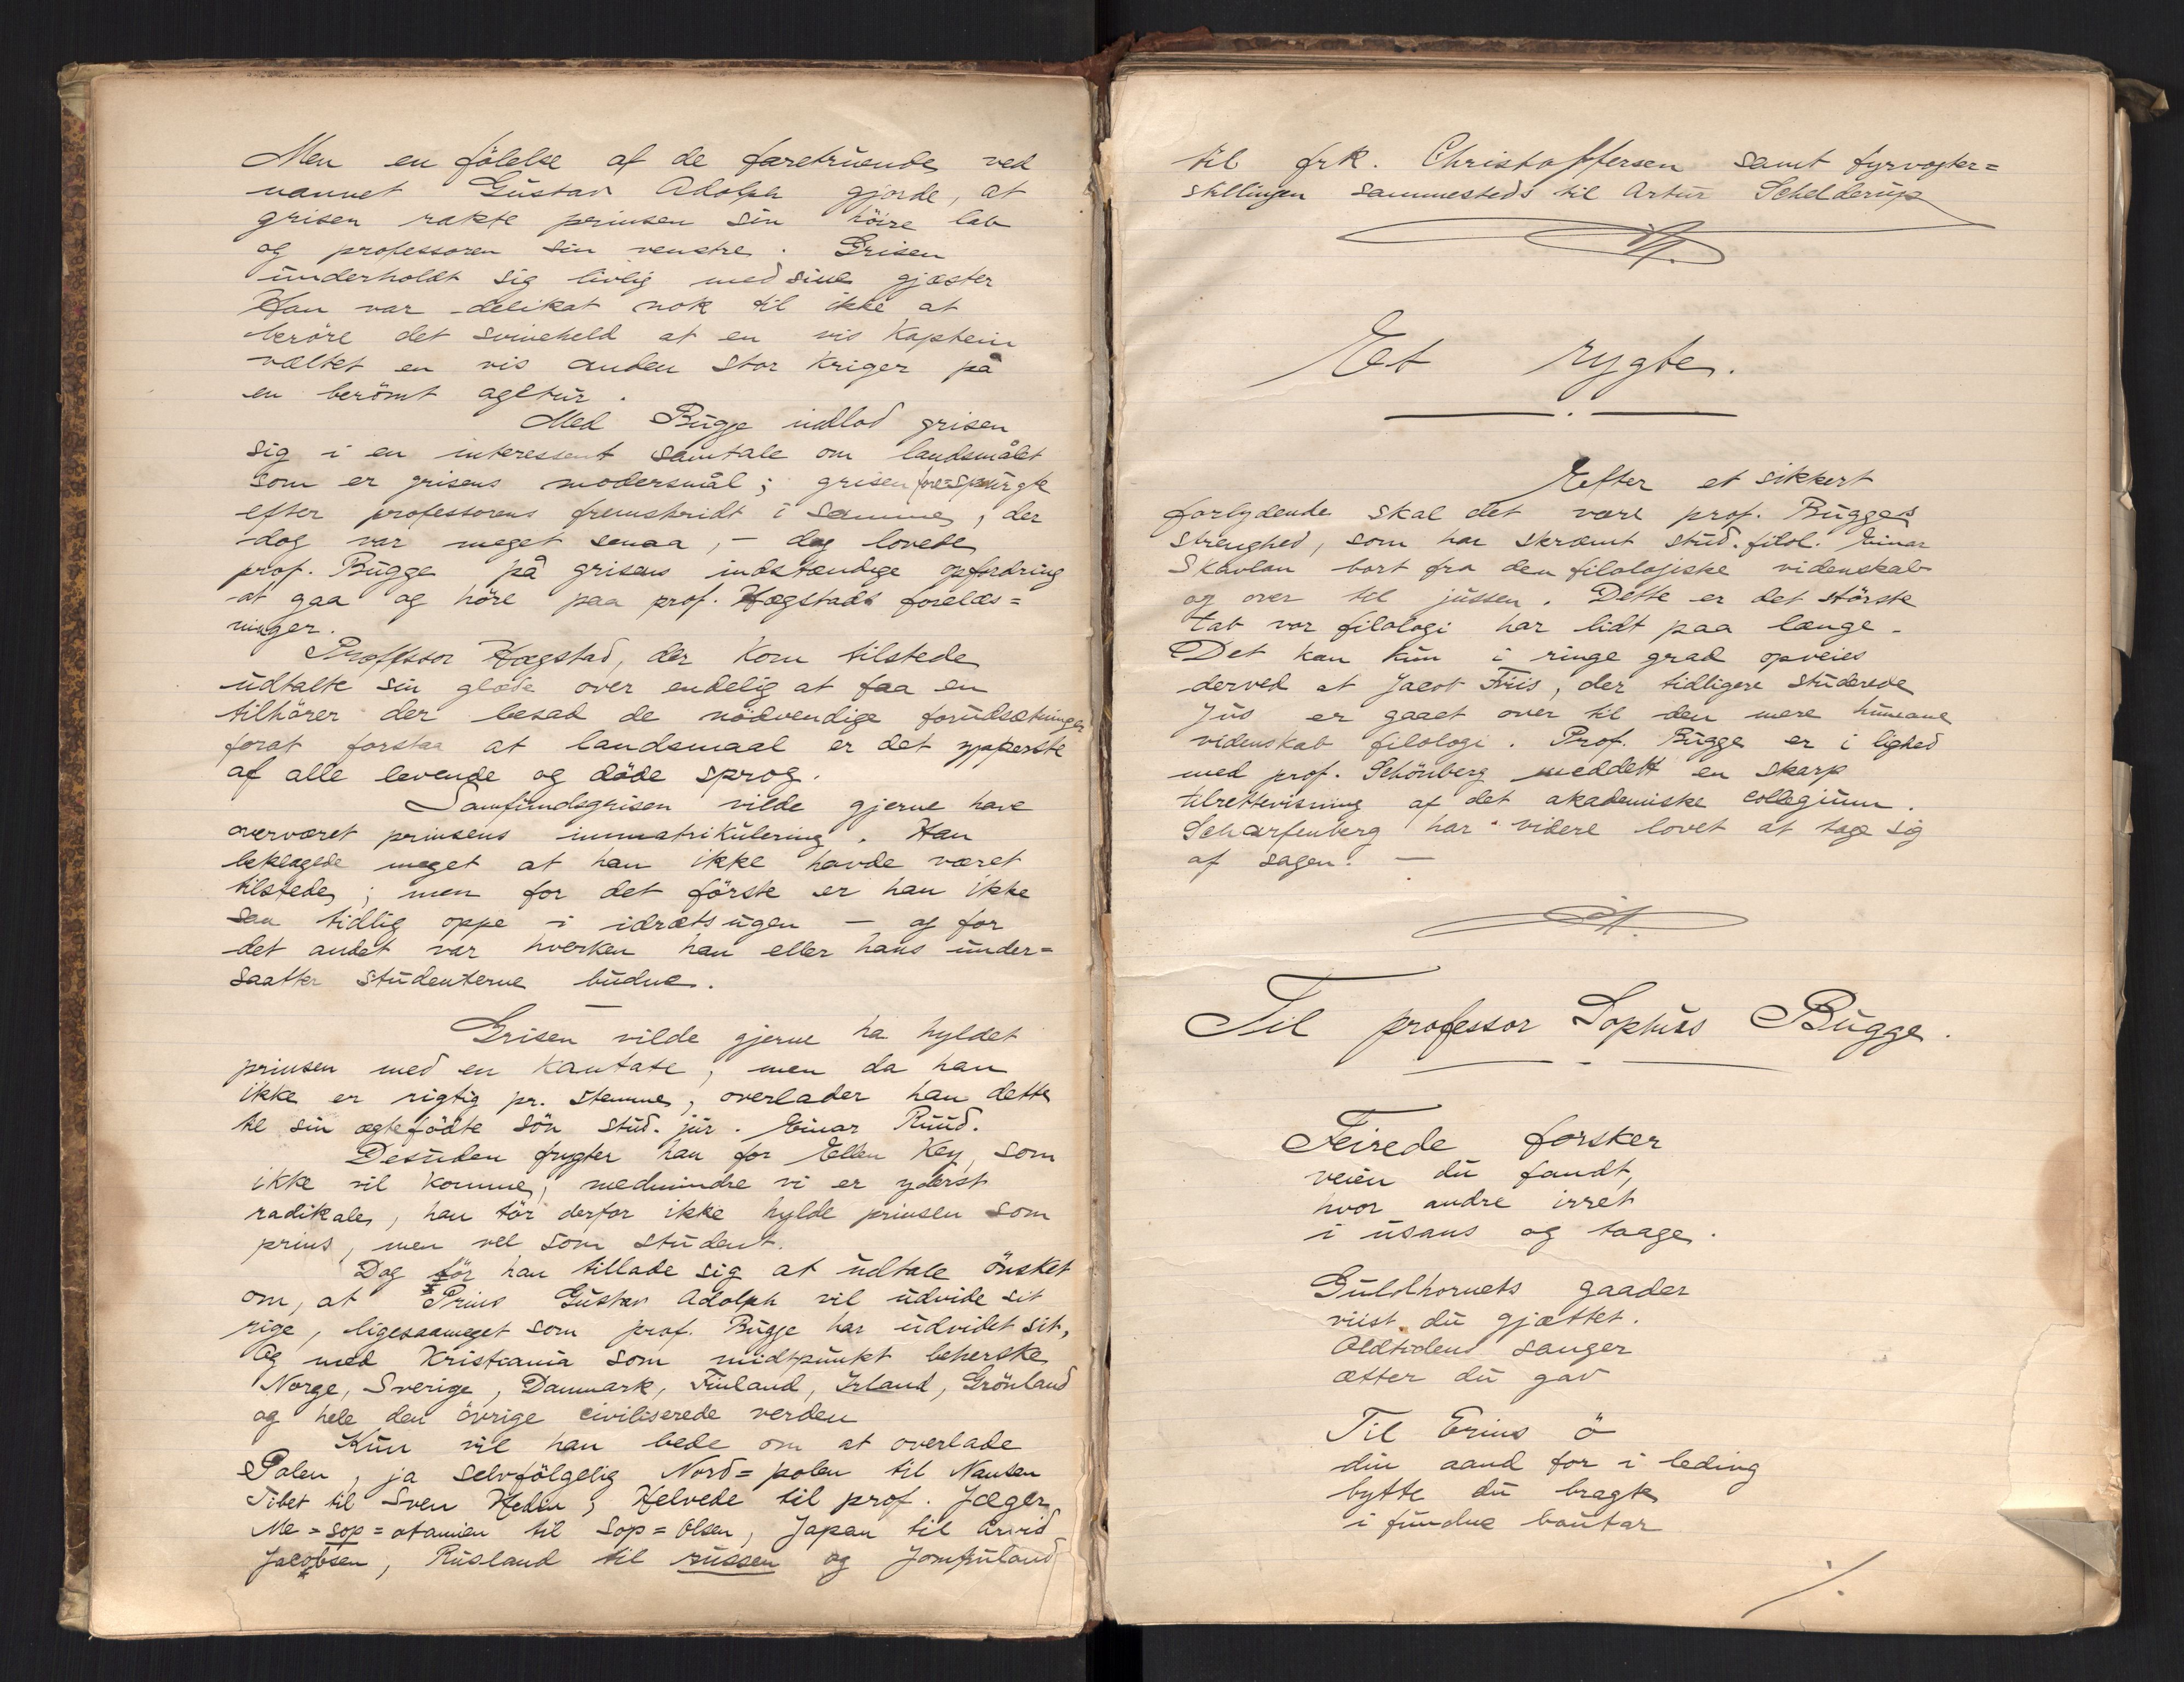 Men en følelse af de faretruende ved
navnet Gustav Adolph gjorde, at
grisen rakte prinsen sin höire lab
og professoren sin venstre. Grisen
underholdt sig livlig med sine gjæster
Han var delikat nok til ikke at
beröre det svineheld at en vis Kaptein
væltet en vis anden stor kriger på
en berömt agetur.
Med Bugge indlod grisen
sig i en interessent samtale om landsmålet
som er grisens modersmål; grisen forespurgte
efter professorens fremskridt i samme, der
dog var meget smaa, - dog lovede
prof. Bugge på grisens indstændige opfordring
at gaa og höre paa prof. Hægstads forelæs=
ninger.
Professor Hægstad, der kom tilstede
udtalte sin glæde over endelig at faa en
tilhörer der besad de nödvendige forudsætninger
forat forstaa at landsmaal er det ypperste
af alle levende og döde sprog.
Samfundsgrisen vilde gjerne have
overværet prinsens immatrikulering. Han
beklagede meget at han ikke havde været
tilstede; men for det förste er han ikke
saa tidlig oppe i idrætsugen - og for
det andet var hverken han eller hans under=
saatter studenterne budne.
Grisen vilde gjerne ha hyldet
prinsen med en kantate; men da han
ikke er rigtig pr. stemme, overlader han dette
til sin ægtefödte sön stud. jur. Einar Ruud.
Desuden frygter han for Ellen Key, som
ikke vil komme, medmindre vi er yderst
radikale, han tör derfor ikke hylde prinsen som
prins, men vel som student.
Dog tör han tillade sig at udtale önsket
om, at Prins Gustav Adolph vil udvide sit
rige, ligesaameget som prof. Bugge har udvidet sit,
Og med Kristiania som midtpunkt beherske
Norge, Sverige, Danmark, Finland, Irland, Grönland
og hele den övrige civiliserede verden
Kun vil han bede om at overlade
Polen, ja selvfölgelig Nord=polen til Nansen
Tibet til Sven Hedin; Helvede til prof. Jæger,
Me=sop=otamien til Sop=Olsen, Japan til Arvid
Jacobsen, Rusland til russen og Jomfruland
til frk. Christoffersen samt fyrvogter=
stillingen sammesteds til Artur Schelderup
Et rygte.
Efter et sikkert
forlydende skal det være prof. Bugges
strenghed, som har skræmt stud. filol. Einar
Skavlan bort fra den filologiske videnskab
og over til jussen. Dette er det störste
tab vor filologi har lidt paa længe.
Det kan kun i ringe grad opveies
derved at Jacob Friis, der tidligere studerede
Jus er gaaet over til den mere humane
videnskab filologi. Prof. Bugge er i lighed
med prof. Schönberg meddelt en skarp
tilrettevisning af det akademiske collegium.
Scharfenberg har videre lovet at tage sig
af sagen. -
Til professor Sophus Bugge.
Feirede forsker
veien du fandt,
hvor andre irret
i usans og taage.
Guldhornets gaader
viist du gjættet.
Oldtidens sanger
ætter du gav
Til Erins ö
din aand for i leding
bytte du bragte
i fundne bautar
./.